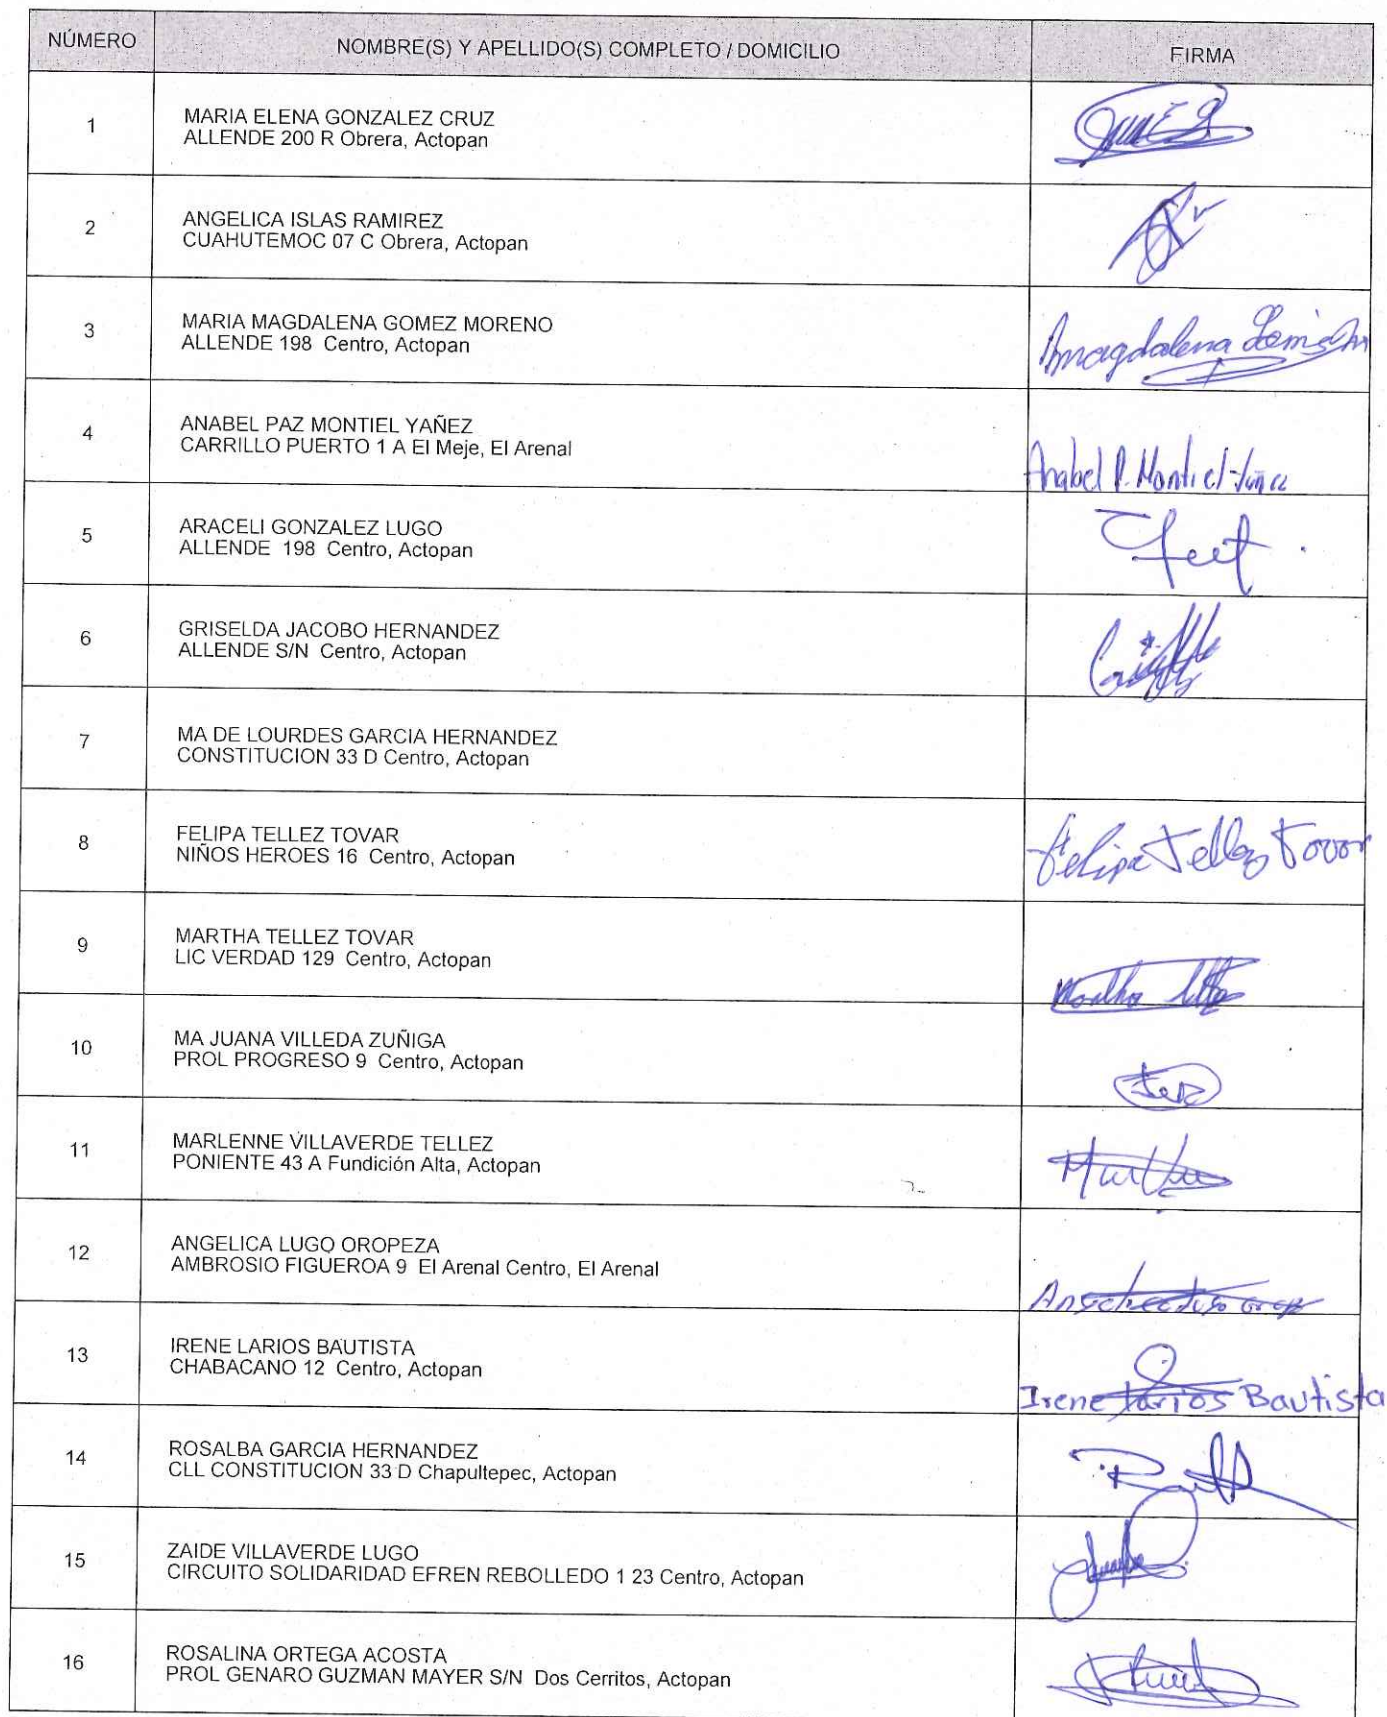 NÚMERO NOMBRE(S) Y APELLIDO(S) COMPLETO / DOMICILIO FIRMA
1 MARIA ELENA GONZALEZ CRUZ
ALLENDE 200 R Obrera, Actopan
2 ANGELICA ISLAS RAMIREZ
CUAHUTEMOC 07 C Obrera, Actopan
3 MARIA MAGDALENA GOMEZ MORENO
ALLENDE 198 Centro, Actopan
magdalena
4 ANABEL PAZ MONTIEL YAÑEZ
CARRILLO PUERTO 1 A El Meje, El Arenal
Anabel P. Montiel Yañez
5 ARACELI GONZALEZ LUGO
ALLENDE 198 Centro, Actopan
6 GRISELDA JACOBO HERNANDEZ
ALLENDE S/N Centro, Actopan
7 MA DE LOURDES GARCIA HERNANDEZ
CONSTITUCION 33 D Centro, Actopan
8 FELIPA TELLEZ TOVAR
NIÑOS HEROES 16 Centro, Actopan
Felipa Tellez Tovar
9 MARTHA TELLEZ TOVAR
LIC VERDAD 129 Centro, Actopan
Martha
10 MA JUANA VILLEDA ZUÑIGA
PROL PROGRESO 9 Centro, Actopan
11 MARLENNE VILLAVERDE TELLEZ
PONIENTE 43 A Fundición Alta, Actopan
12 ANGELICA LUGO OROPEZA
AMBROSIO FIGUEROA 9 El Arenal Centro, El Arenal
13 IRENE LARIOS BAUTISTA
CHABACANO 12 Centro, Actopan
Irene Larios Bautista
14 ROSALBA GARCIA HERNANDEZ
CLL CONSTITUCION 33 D Chapultepec, Actopan
15 ZAIDE VILLAVERDE LUGO
CIRCUITO SOLIDARIDAD EFREN REBOLLEDO 1 23 Centro, Actopan
16 ROSALINA ORTEGA ACOSTA
PROL GENARO GUZMAN MAYER S/N Dos Cerritos, Actopan